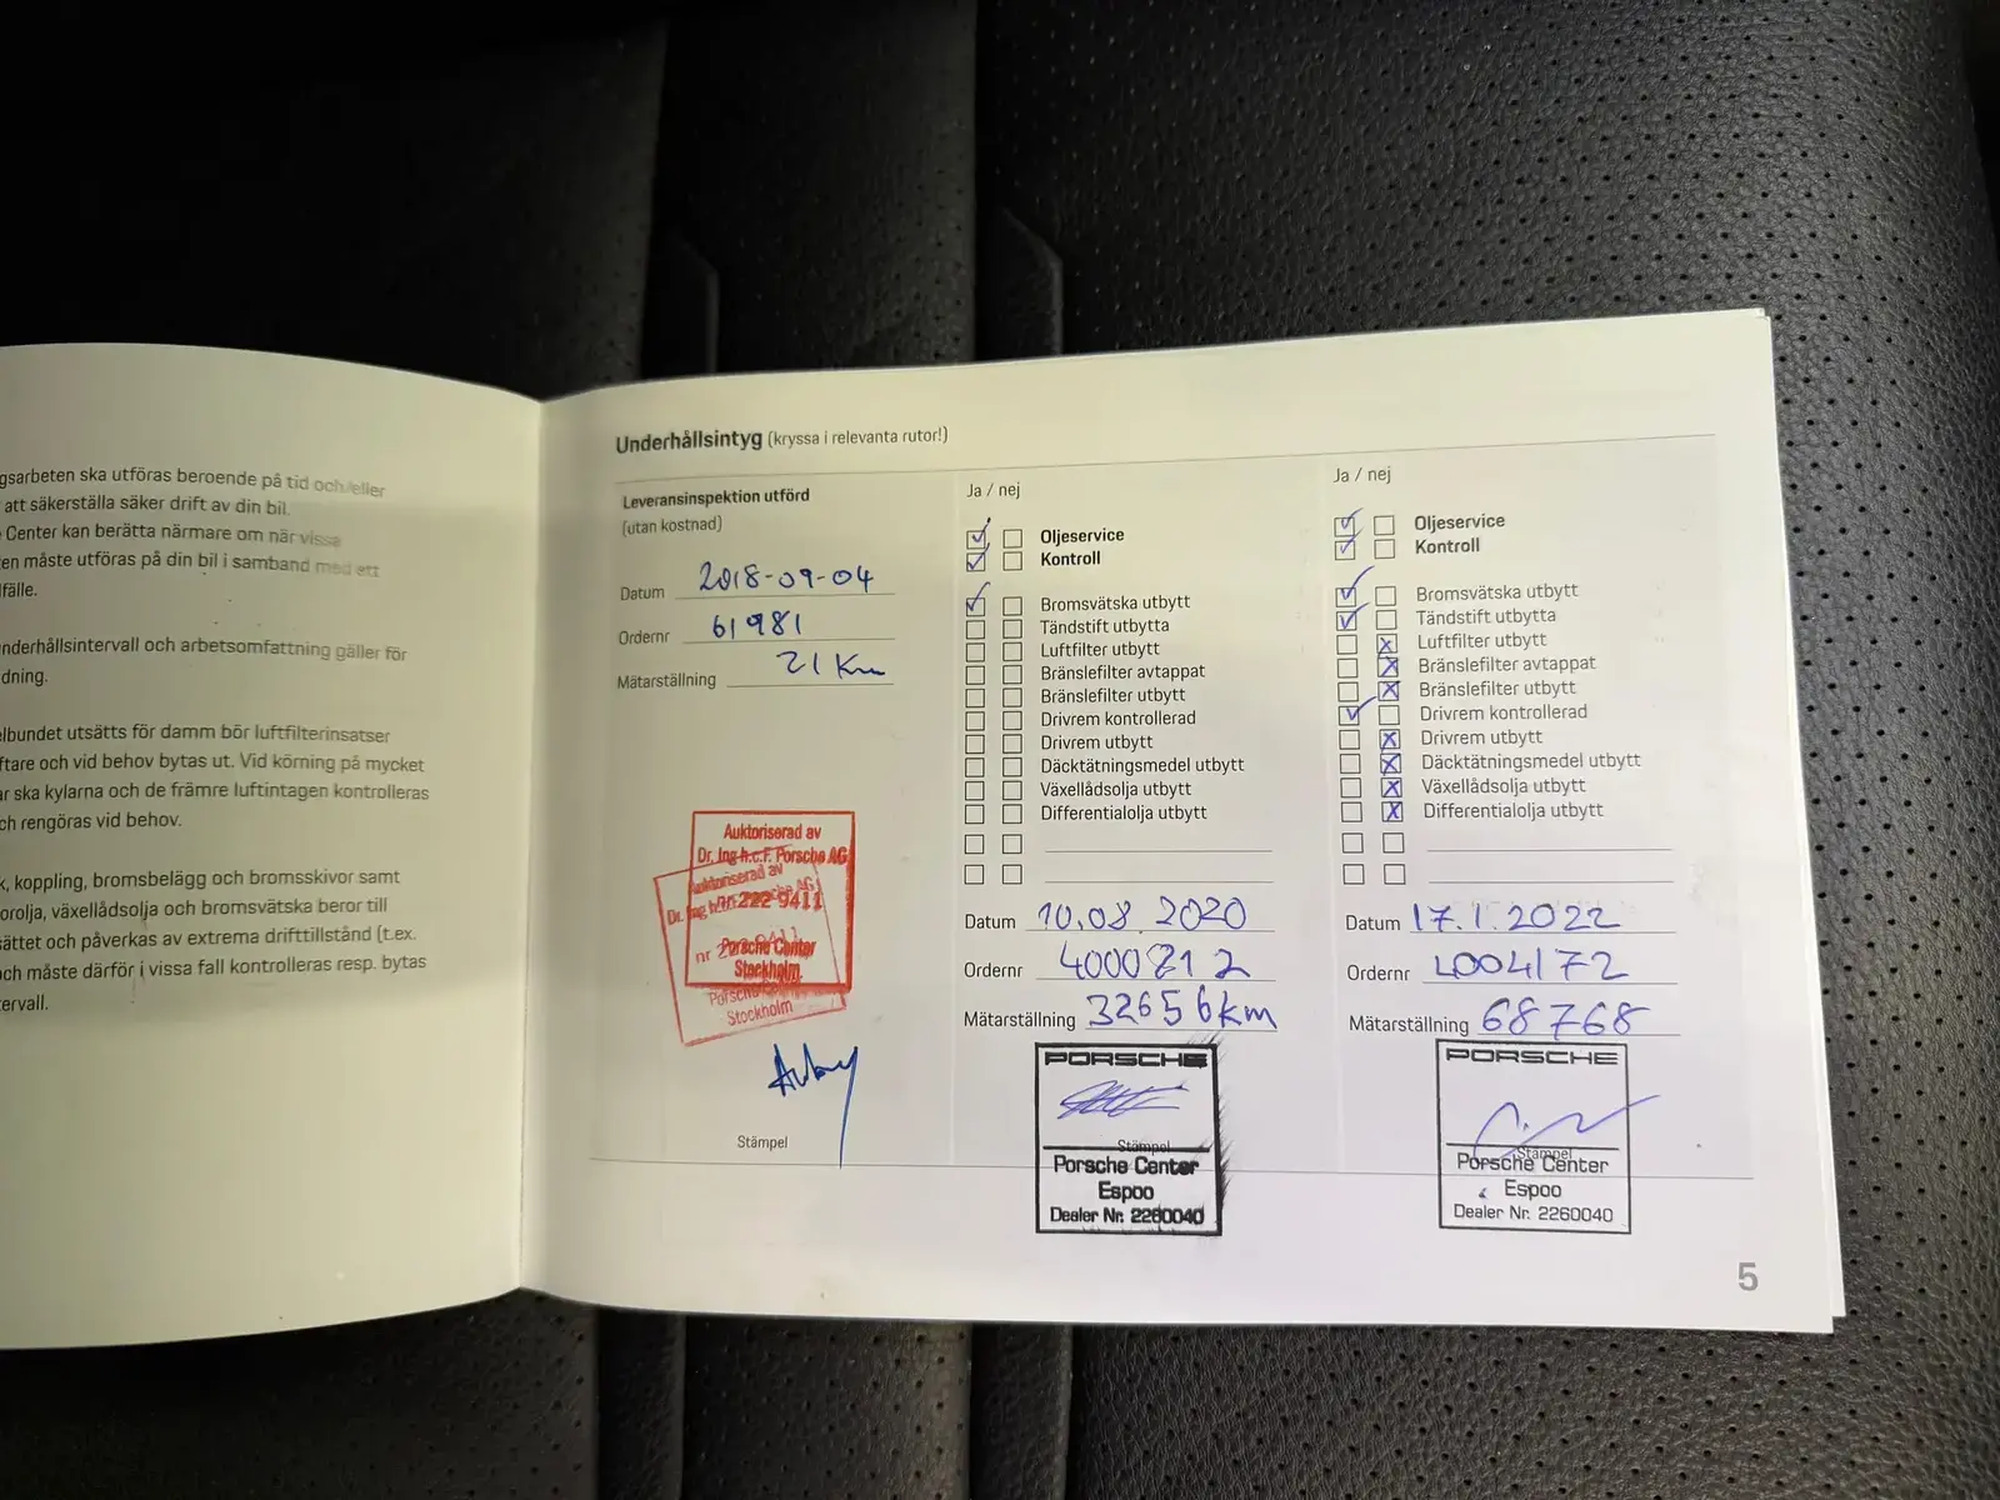 gsarbeten ska utföras beroende på tid och/eller
att säkerställa säker drift av din bil.
Center kan berätta närmare om när vissa
en måste utföras på din bil i samband med ett
fälle.
nderhållsintervall och arbetsomfattning gäller för
dning.
elbundet utsätts för damm bör luftfilterinsatser
ftare och vid behov bytas ut. Vid körning på mycket
ar ska kylarna och de främre luftintagen kontrolleras
ch rengöras vid behov.
k, koppling, bromsbelägg och bromsskivor samt
orolja, växellådsolja och bromsvätska beror till
sättet och påverkas av extrema drifttillstånd (t.ex.
och måste därför i vissa fall kontrolleras resp. bytas
tervall.
Underhållsintyg (kryssa i relevanta rutor!)
Leveransinspektion utförd
(utan kostnad)
Datum 2018-09-04
Ordernr 61981
Mätarställning 21 Km
Auktoriserad av
Dr. Ing h.c.F. Porsche AG
nr 222 9411
Porsche Center
Stockholm
Auktoriserad av
Dr. Ing h.c.F. Porsche AG
nr 222 9411
Porsche Center
Stockholm
Stämpel
Ja / nej
Oljeservice
Kontroll
Bromsvätska utbytt
Tändstift utbytta
Luftfilter utbytt
Bränslefilter avtappat
Bränslefilter utbytt
Drivrem kontrollerad
Drivrem utbytt
Däcktätningsmedel utbytt
Växellådsolja utbytt
Differentialolja utbytt
Datum 10.08.2020
Ordernr 4000212
Mätarställning 32656km
PORSCHE
Stämpel
Porsche Center
Espoo
Dealer Nr. 2260040
Ja / nej
Oljeservice
Kontroll
Bromsvätska utbytt
Tändstift utbytta
Luftfilter utbytt
Bränslefilter avtappat
Bränslefilter utbytt
Drivrem kontrollerad
Drivrem utbytt
Däcktätningsmedel utbytt
Växellådsolja utbytt
Differentialolja utbytt
Datum 17.1.2022
Ordernr 4004172
Mätarställning 68768
PORSCHE
Stämpel
Porsche Center
Espoo
Dealer Nr. 2260040
5